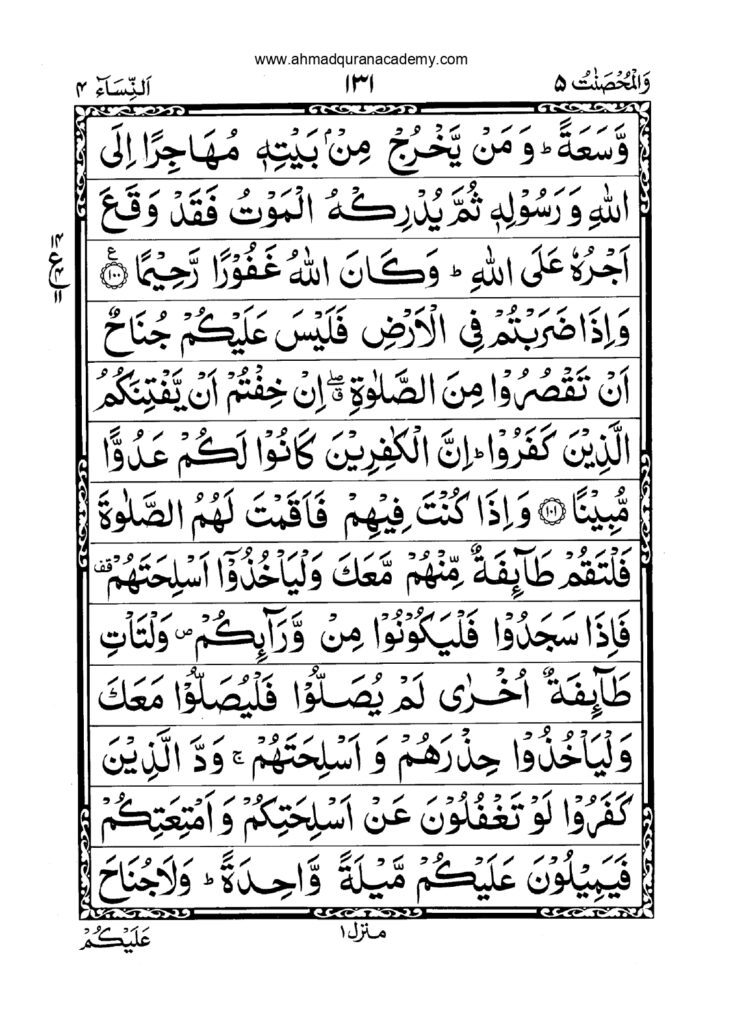 www.ahmadquranacademy.com
وَالْمُحْصَنٰتُ ۵ ۱۳۱ اَلنِّسَآءِ ۴
وَّسَعَةً ؕ وَ مَنْ يَّخْرُجْ مِنْۢ بَيْتِهٖ مُهَاجِرًا اِلَى
اللّٰهِ وَ رَسُوْلِهٖ ثُمَّ يُدْرِكْهُ الْمَوْتُ فَقَدْ وَقَعَ
اَجْرُهٗ عَلَى اللّٰهِ ؕ وَكَانَ اللّٰهُ غَفُوْرًا رَّحِيْمًا ﴿۱۰۰﴾ ع
۱۴ ع ۴ ۱۱
وَاِذَا ضَرَبْتُمْ فِي الْاَرْضِ فَلَيْسَ عَلَيْكُمْ جُنَاحٌ
اَنْ تَقْصُرُوْا مِنَ الصَّلٰوةِ ۖۗ اِنْ خِفْتُمْ اَنْ يَّفْتِنَكُمُ
الَّذِيْنَ كَفَرُوْا ؕ اِنَّ الْكٰفِرِيْنَ كَانُوْا لَكُمْ عَدُوًّا
مُّبِيْنًا ﴿۱۰۱﴾ وَاِذَا كُنْتَ فِيْهِمْ فَاَقَمْتَ لَهُمُ الصَّلٰوةَ
فَلْتَقُمْ طَآئِفَةٌ مِّنْهُمْ مَّعَكَ وَلْيَاْخُذُوْۤا اَسْلِحَتَهُمْ قف
فَاِذَا سَجَدُوْا فَلْيَكُوْنُوْا مِنْ وَّرَآئِكُمْ ص وَلْتَاْتِ
طَآئِفَةٌ اُخْرٰى لَمْ يُصَلُّوْا فَلْيُصَلُّوْا مَعَكَ
وَلْيَاْخُذُوْا حِذْرَهُمْ وَ اَسْلِحَتَهُمْ ۚ وَدَّ الَّذِيْنَ
كَفَرُوْا لَوْ تَغْفُلُوْنَ عَنْ اَسْلِحَتِكُمْ وَ اَمْتِعَتِكُمْ
فَيَمِيْلُوْنَ عَلَيْكُمْ مَّيْلَةً وَّاحِدَةً ؕ وَلَا جُنَاحَ
منزل ۱ عَلَيْكُمْ